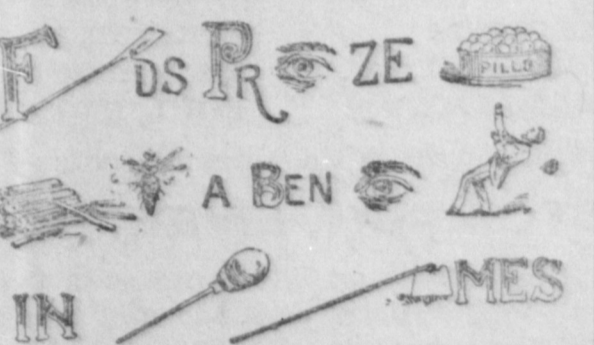 F DS PR ZE PILLS
A BEN
IN MES